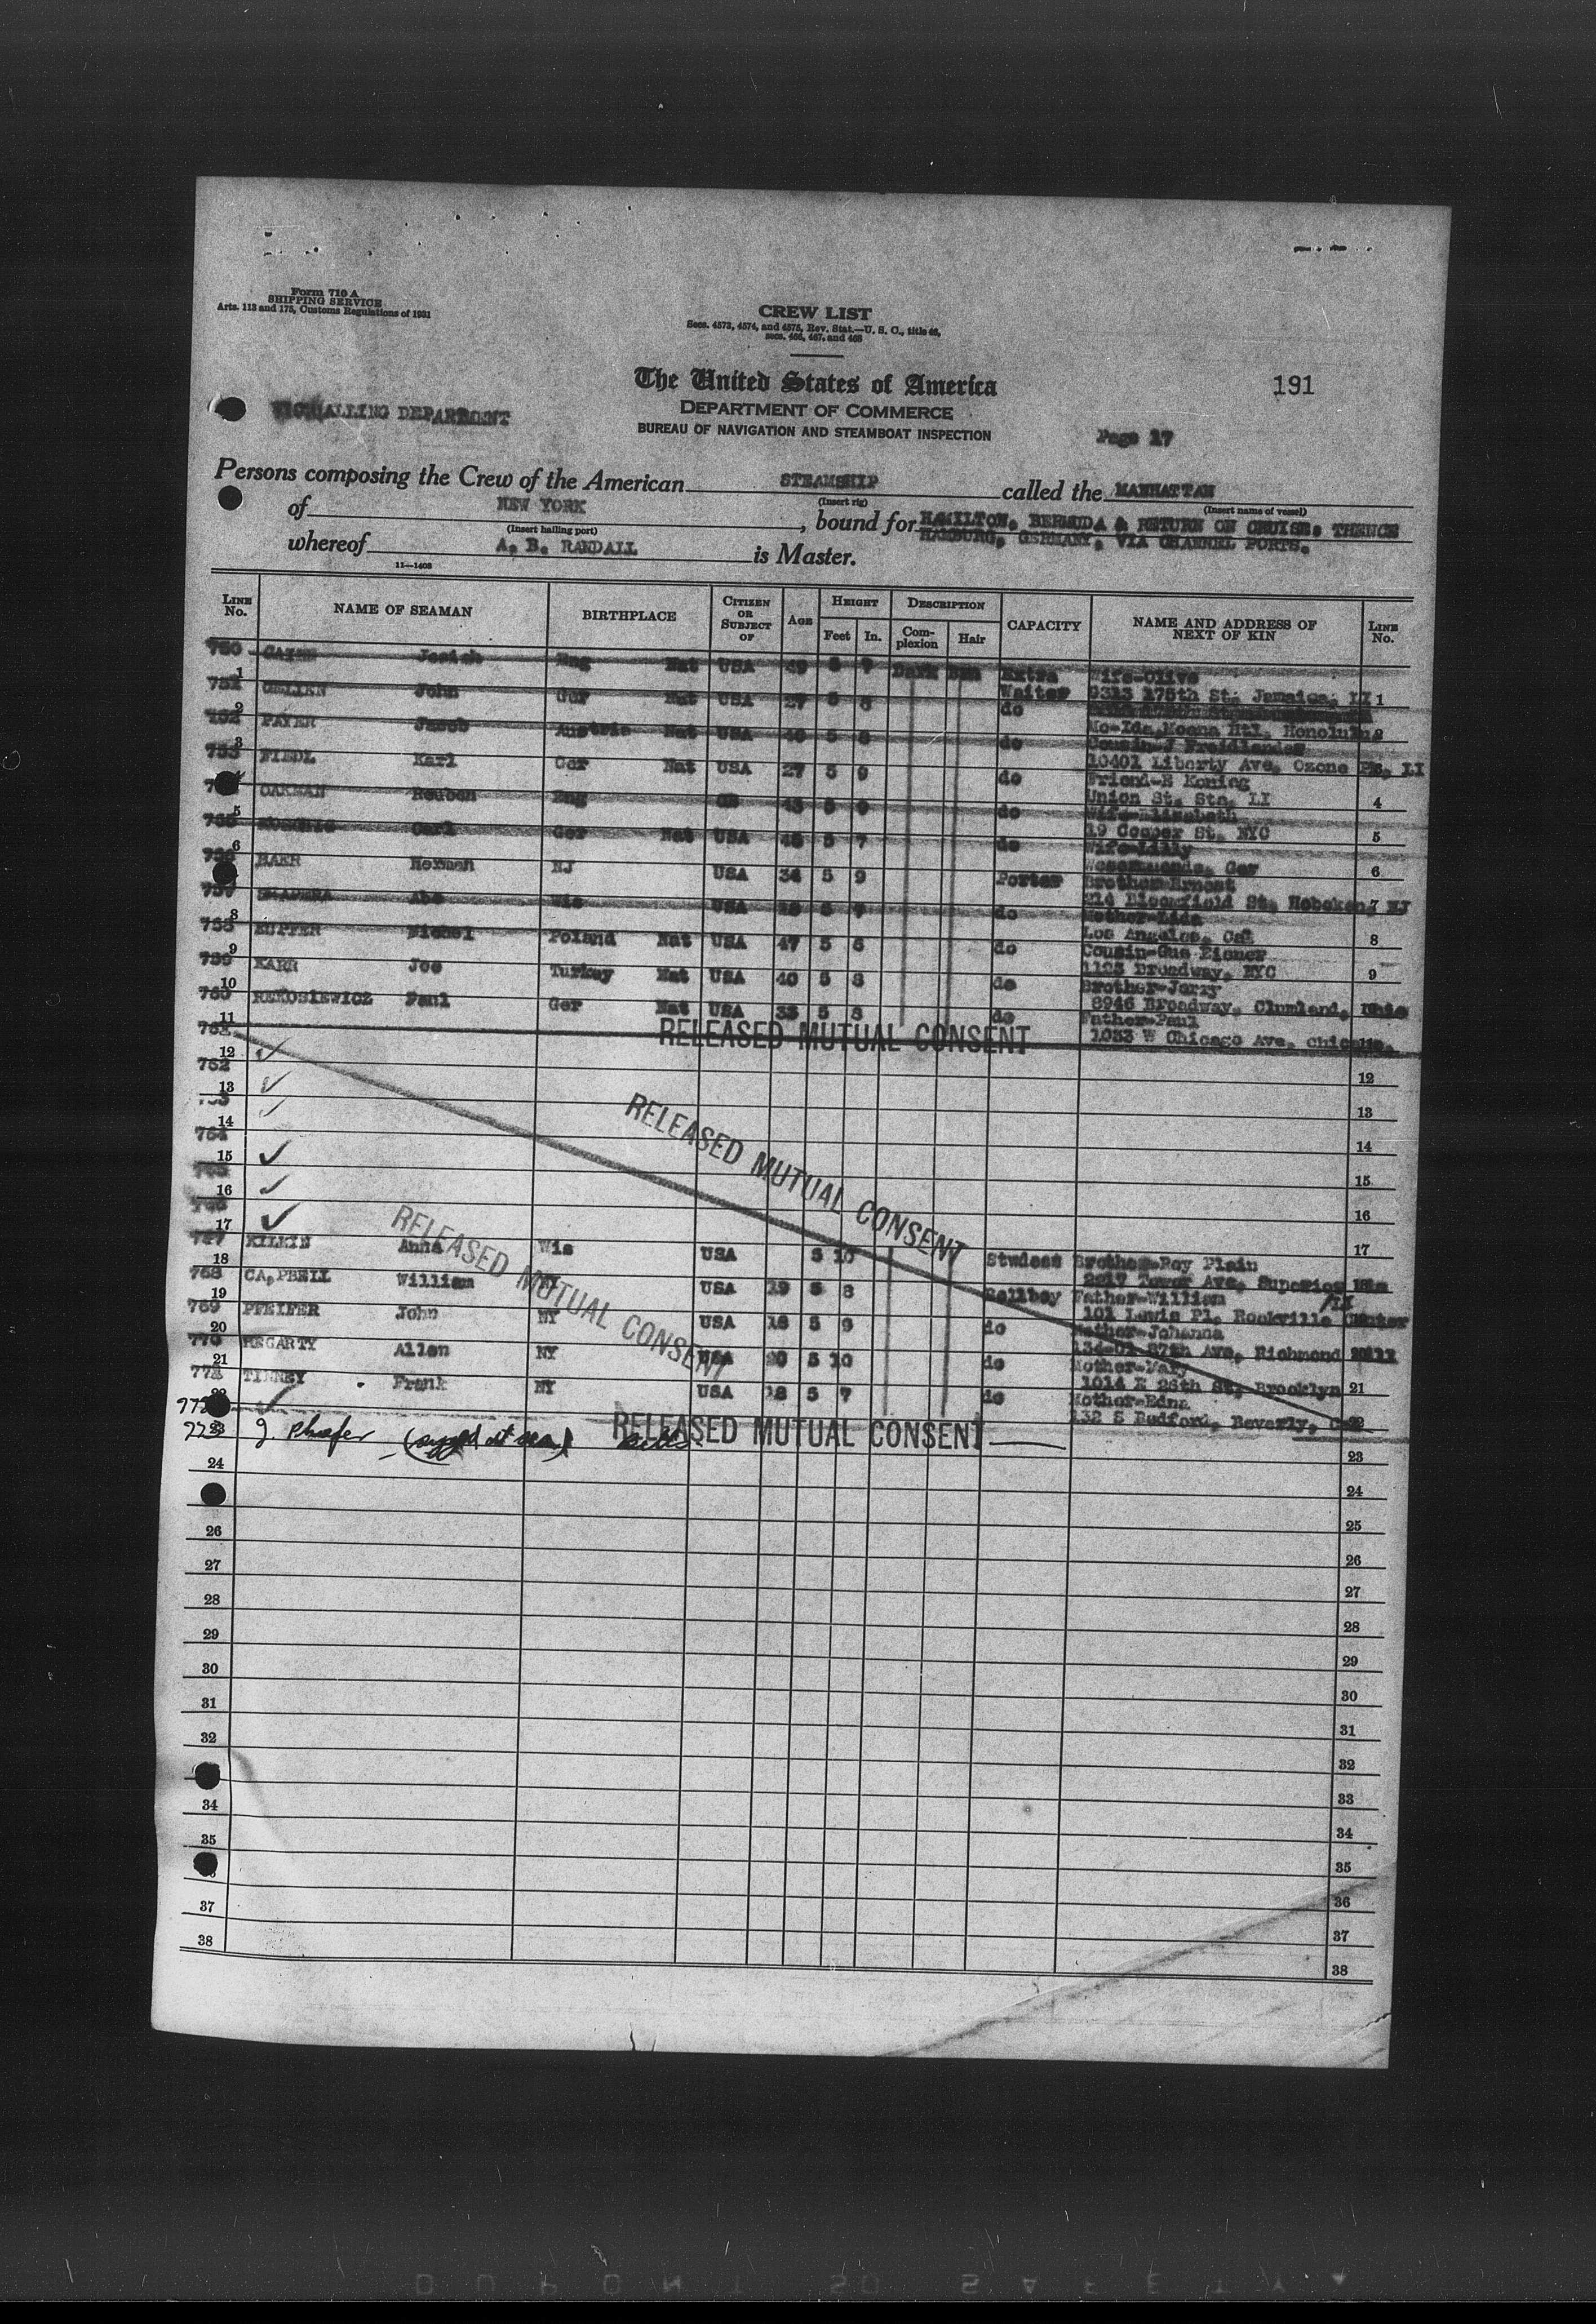 Form 710 A
SHIPPING SERVICE
Arts. 113 and 175, Customs Regulations of 1931
CREW LIST
Secs. 4573, 4574, and 4575, Rev. Stat.—U. S. C., title 46,
secs. 466, 467, and 468
The United States of America
191
DEPARTMENT OF COMMERCE
VICTUALLING DEPARTMENT
BUREAU OF NAVIGATION AND STEAMBOAT INSPECTION
Page 17
Persons composing the Crew of the American STEAMSHIP called the MANHATTAN
(Insert rig) (Insert name of vessel)
of NEW YORK, bound for HAMILTON, BERMUDA & RETURN ON CRUISE, THENCE
(Insert hailing port) HAMBURG, GERMANY, VIA CHANNEL PORTS.
whereof A. B. RANDALL is Master.
11—1408
LINE No. NAME OF SEAMAN BIRTHPLACE CITIZEN OR SUBJECT OF AGE HEIGHT Feet In. DESCRIPTION Complexion Hair CAPACITY NAME AND ADDRESS OF NEXT OF KIN LINE No.
750 Josiah Eng Nat USA 49 5 7 Dark Brn Extra Wife-Olive
1 Waiter 9313 175th St. Jamaica, LI 1
751 John Ger Nat USA 27 5 8 do
2 Mo-Ida, Moana Htl, Honolulu 2
752 PAYER Jacob Austria Nat USA 40 5 8 do Cousin-J Freidlander
3 10401 Liberty Ave, Ozone Pk, LI
753 FIEDL Karl Ger Nat USA 27 5 9 do Friend-E Koning
Union St. Stn, LI 4
OAKMAN Reuben Eng 43 5 9 do Wife-Elizabeth
5 19 Cooper St, NYC 5
755 Carl Ger Nat USA 45 5 7 do Wife-Lilly
6 Ger 6
756 BAER Herman NJ USA 34 5 9 Porter Brother-Ernest
214 Bloomfield St, Hoboken, NJ 7
757 Abe Wis USA 5 7 do Mother-Lida
8 Los Angeles, Cal 8
758 KUPFER Michel Poland Nat USA 47 5 6 do Cousin-Gus Eisner
9 1123 Broadway, NYC 9
759 KARR Joe Turkey Nat USA 40 5 8 do Brother-Jerry
10 8946 Broadway, Clumland, Ohio
760 REKOSIEWICZ Paul Ger Nat USA 33 5 8 do Father-Paul
11 RELEASED MUTUAL CONSENT 1033 W Chicago Ave, chicago.
761
12 12
762
13 13
14 RELEASED MUTUAL CONSENT 14
764
15 15
765
16 16
766
17 RELEASED MUTUAL CONSENT 17
767 KILKIN Anna Wis USA 5 10 Stwdess Brother-Roy Plain
18 2217 Tower Ave, Superior
768 CA,PBELL William NY USA 19 5 8 Bellboy Father-William /LI
19 101 Lewis Pl, Rockville Center
769 PFEIFER John NY USA 18 5 9 do Mother-Johanna
20 87th Ave, Richmond Hill
770 HEGARTY Allen NY USA 20 5 10 do Mother-Mary
21 1014 E 26th St, Brooklyn 21
771 TIERNEY Frank NY USA 18 5 7 do Mother-Edna
132 S Bedford, Beverly, Cal 22
772
773 J. Phaefer (signed at sea) Bells RELEASED MUTUAL CONSENT
23 23
24 24
25
26 26
27 27
28 28
29 29
30 30
31 31
32 32
33
34 34
35 35
36
37 37
38 38
DUPONT SO SAFETY